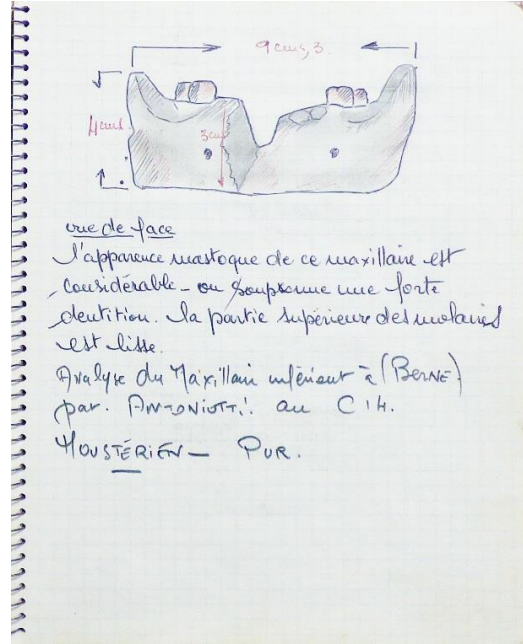 9 cms, 3.
4 cms
3 cms
vue de face
l'apparence mastoque de ce maxillaire est
considérable - on soupsonne une forte
dentition. la partie supérieure des molaires
est lisse.
Analyse du Maxillaire inférieur à (BERNE)
par. ANTONIOTTI. au C 14.
MOUSTÉRIEN - PUR.